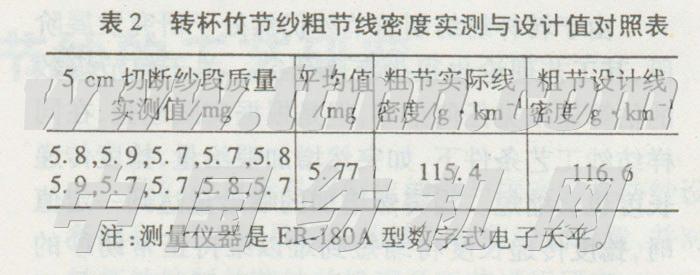 表2 转杯竹节纱粗节线密度实测与设计值对照表
5 cm切断纱段质量 平均值 粗节实际线 粗节设计线
实测值/mg /mg 密度/g·km⁻¹ 密度/g·km⁻¹
5.8,5.9,5.7,5.7,5.8
5.77 115.4 116.6
5.9,5.7,5.7,5.8,5.7
注:测量仪器是ER-180A型数字式电子天平。
中国纺机网